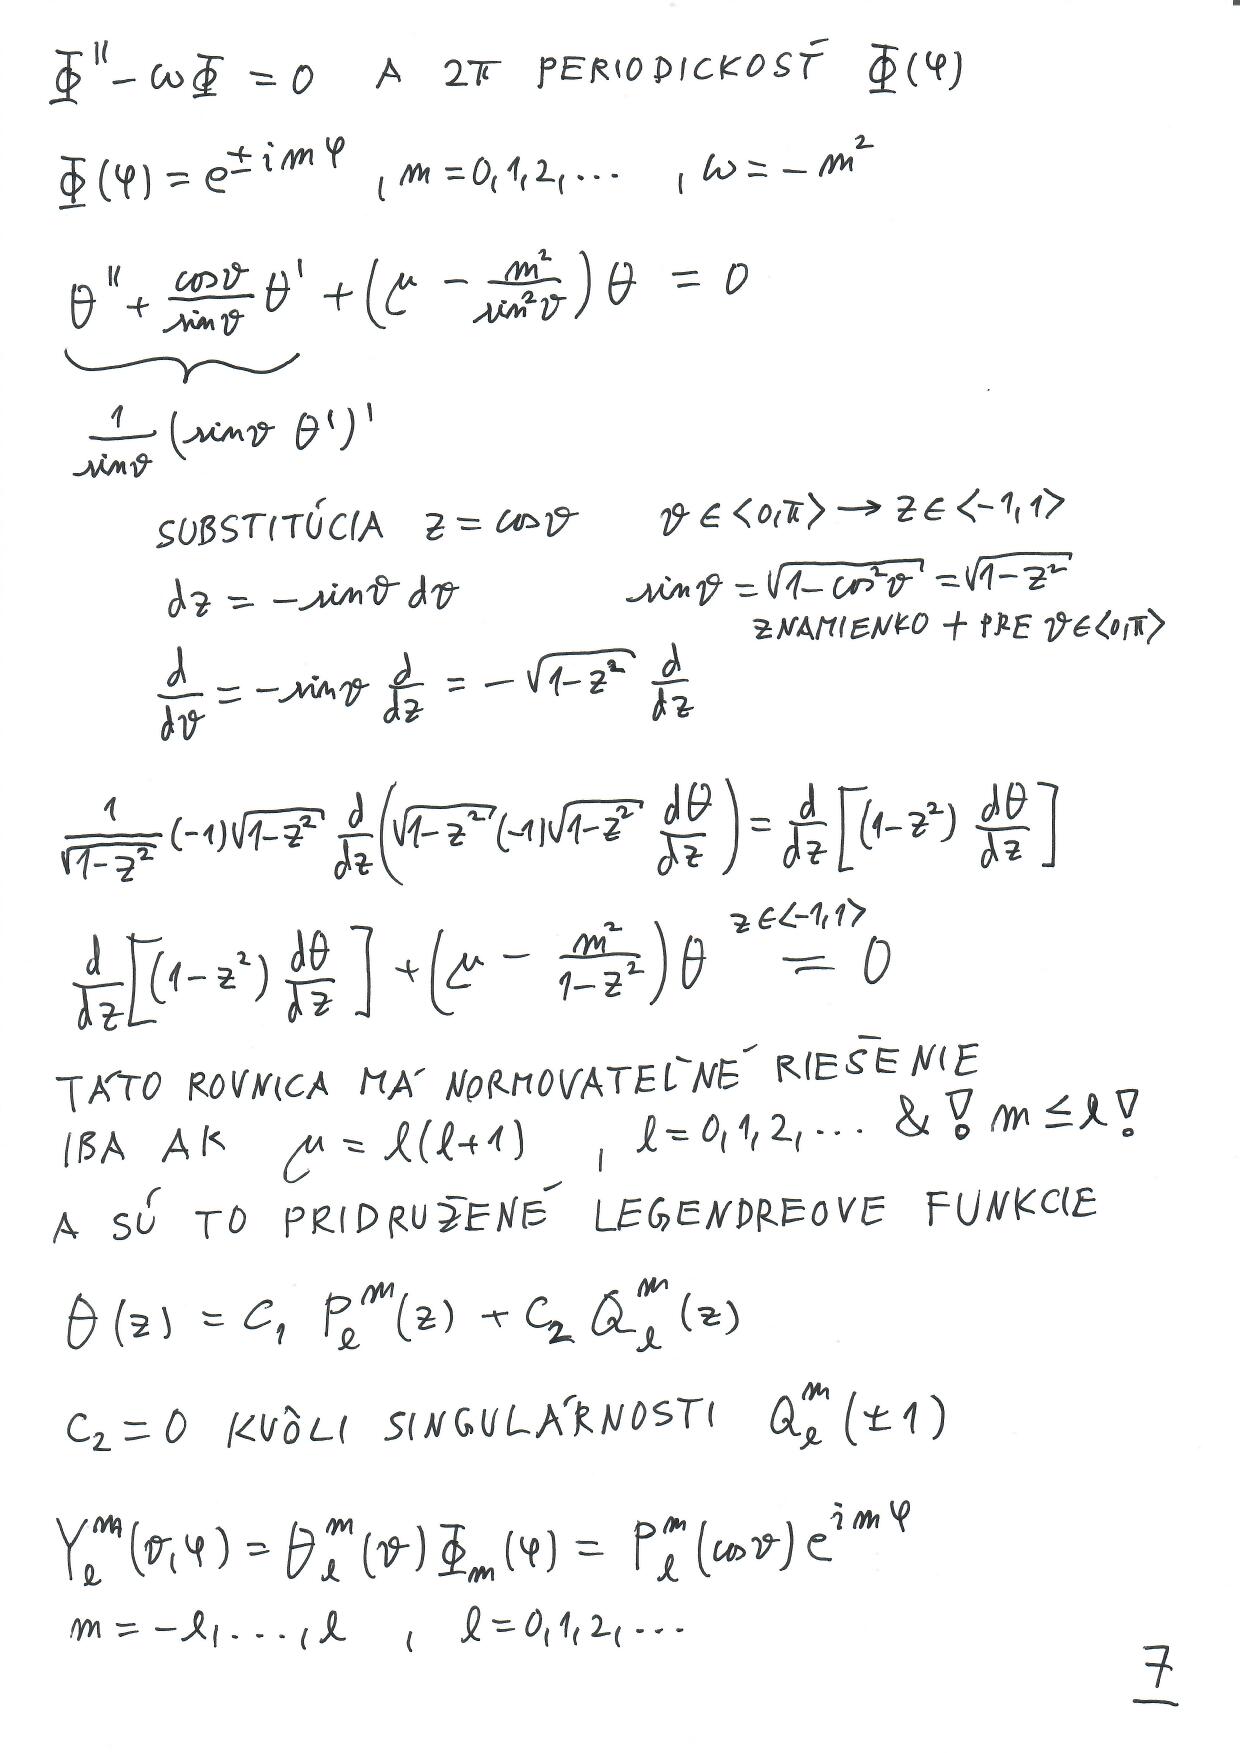 Φ'' - ωΦ = 0 A 2π PERIODICKOSŤ Φ(φ)
Φ(φ) = e^{±imφ} , m = 0,1,2,... , ω = -m²
θ'' + \frac{cosϑ}{sinϑ} θ' + (μ - \frac{m²}{sin²ϑ}) θ = 0
\frac{1}{sinϑ} (sinϑ θ')'
SUBSTITÚCIA z = cosϑ ϑ ∈ <0,π> → z ∈ <-1,1>
dz = -sinϑ dϑ sinϑ = \sqrt{1-cos²ϑ} = \sqrt{1-z²}
ZNAMIENKO + PRE ϑ∈<0,π>
\frac{d}{dϑ} = -sinϑ \frac{d}{dz} = -\sqrt{1-z²} \frac{d}{dz}
\frac{1}{\sqrt{1-z²}} (-1)\sqrt{1-z²} \frac{d}{dz} (\sqrt{1-z²} (-1)\sqrt{1-z²} \frac{dθ}{dz}) = \frac{d}{dz} [(1-z²) \frac{dθ}{dz}]
\frac{d}{dz} [(1-z²) \frac{dθ}{dz}] + (μ - \frac{m²}{1-z²}) θ = 0 z∈<-1,1>
TÁTO ROVNICA MÁ NORMOVATEĽNÉ RIEŠENIE
IBA AK μ = l(l+1) , l = 0,1,2,... & ! m ≤ l !
A SÚ TO PRIDRUŽENÉ LEGENDREOVE FUNKCIE
θ(z) = C₁ P_l^m(z) + C₂ Q_l^m(z)
C₂ = 0 KVÔLI SINGULÁRNOSTI Q_l^m(±1)
Y_l^m(ϑ,φ) = θ_l^m(ϑ) Φ_m(φ) = P_l^m(cosϑ) e^{imφ}
m = -l,...,l , l = 0,1,2,...
7